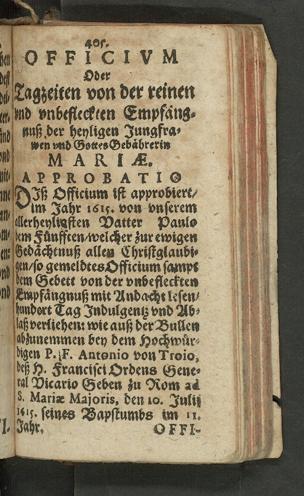 405.
OFFICIVM
Oder
Tagzeiten von der reinen
vnd vnbefleckten Empfäng-
nuß der heyligen Jungfra-
wen vnd Gottes Gebährerin
MARIÆ.
APPROBATIO
DIß Officium ist approbiert/
im Jahr 1615. von vnserem
allerheyligsten Vatter Paulo
dem Fünfften/welcher zur ewigen
Gedächtnuß allen Christglaubi-
gen/so gemeldtes Officium sampt
dem Gebett von der vnbefleckten
Empfängnuß mit Andacht lesen/
hundort Tag Indulgentz vnd Ab-
laß verliehen: wie auß der Bullen
abzunemmen bey dem Hochwür-
digen P. F. Antonio von Troio,
deß H. Francisci Ordens Gene-
ral Vicario Geben zu Rom ad
S. Mariæ Majoris, den 10. Julij
1615. seines Bapstumbs im 11.
Jahr. OFFI-